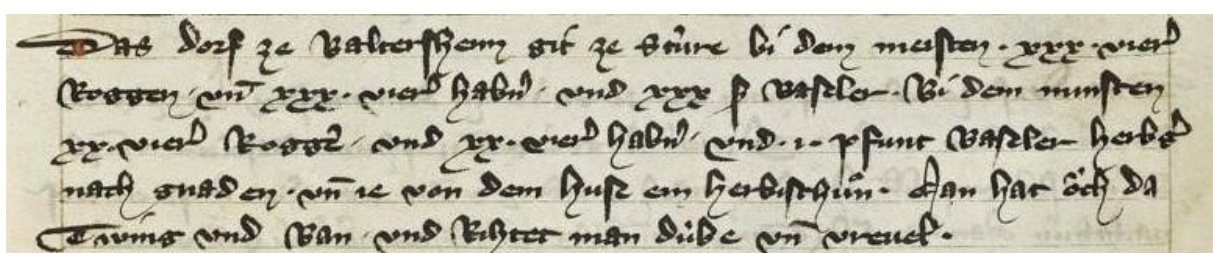 Das dorf ze Baltersheim git ze Stúre bi dem meisten · xxx · vier͛
Roggen · vn̄ xxx · vier͛ habn͛ · vnd xxx ẞ Baseler · Bi dem minsten
xx · vier͛ Rogg͛ · vnd xx · vier͛ habn͛ · vnd · i · pfunt Baseler herbg͛
nach gnaden · vn̄ ie von dem huse ein herbisthůn · Man hat ǒch da
Twing vnd Ban · vnd Rihtet man dúbe vn̄ vreuel ·